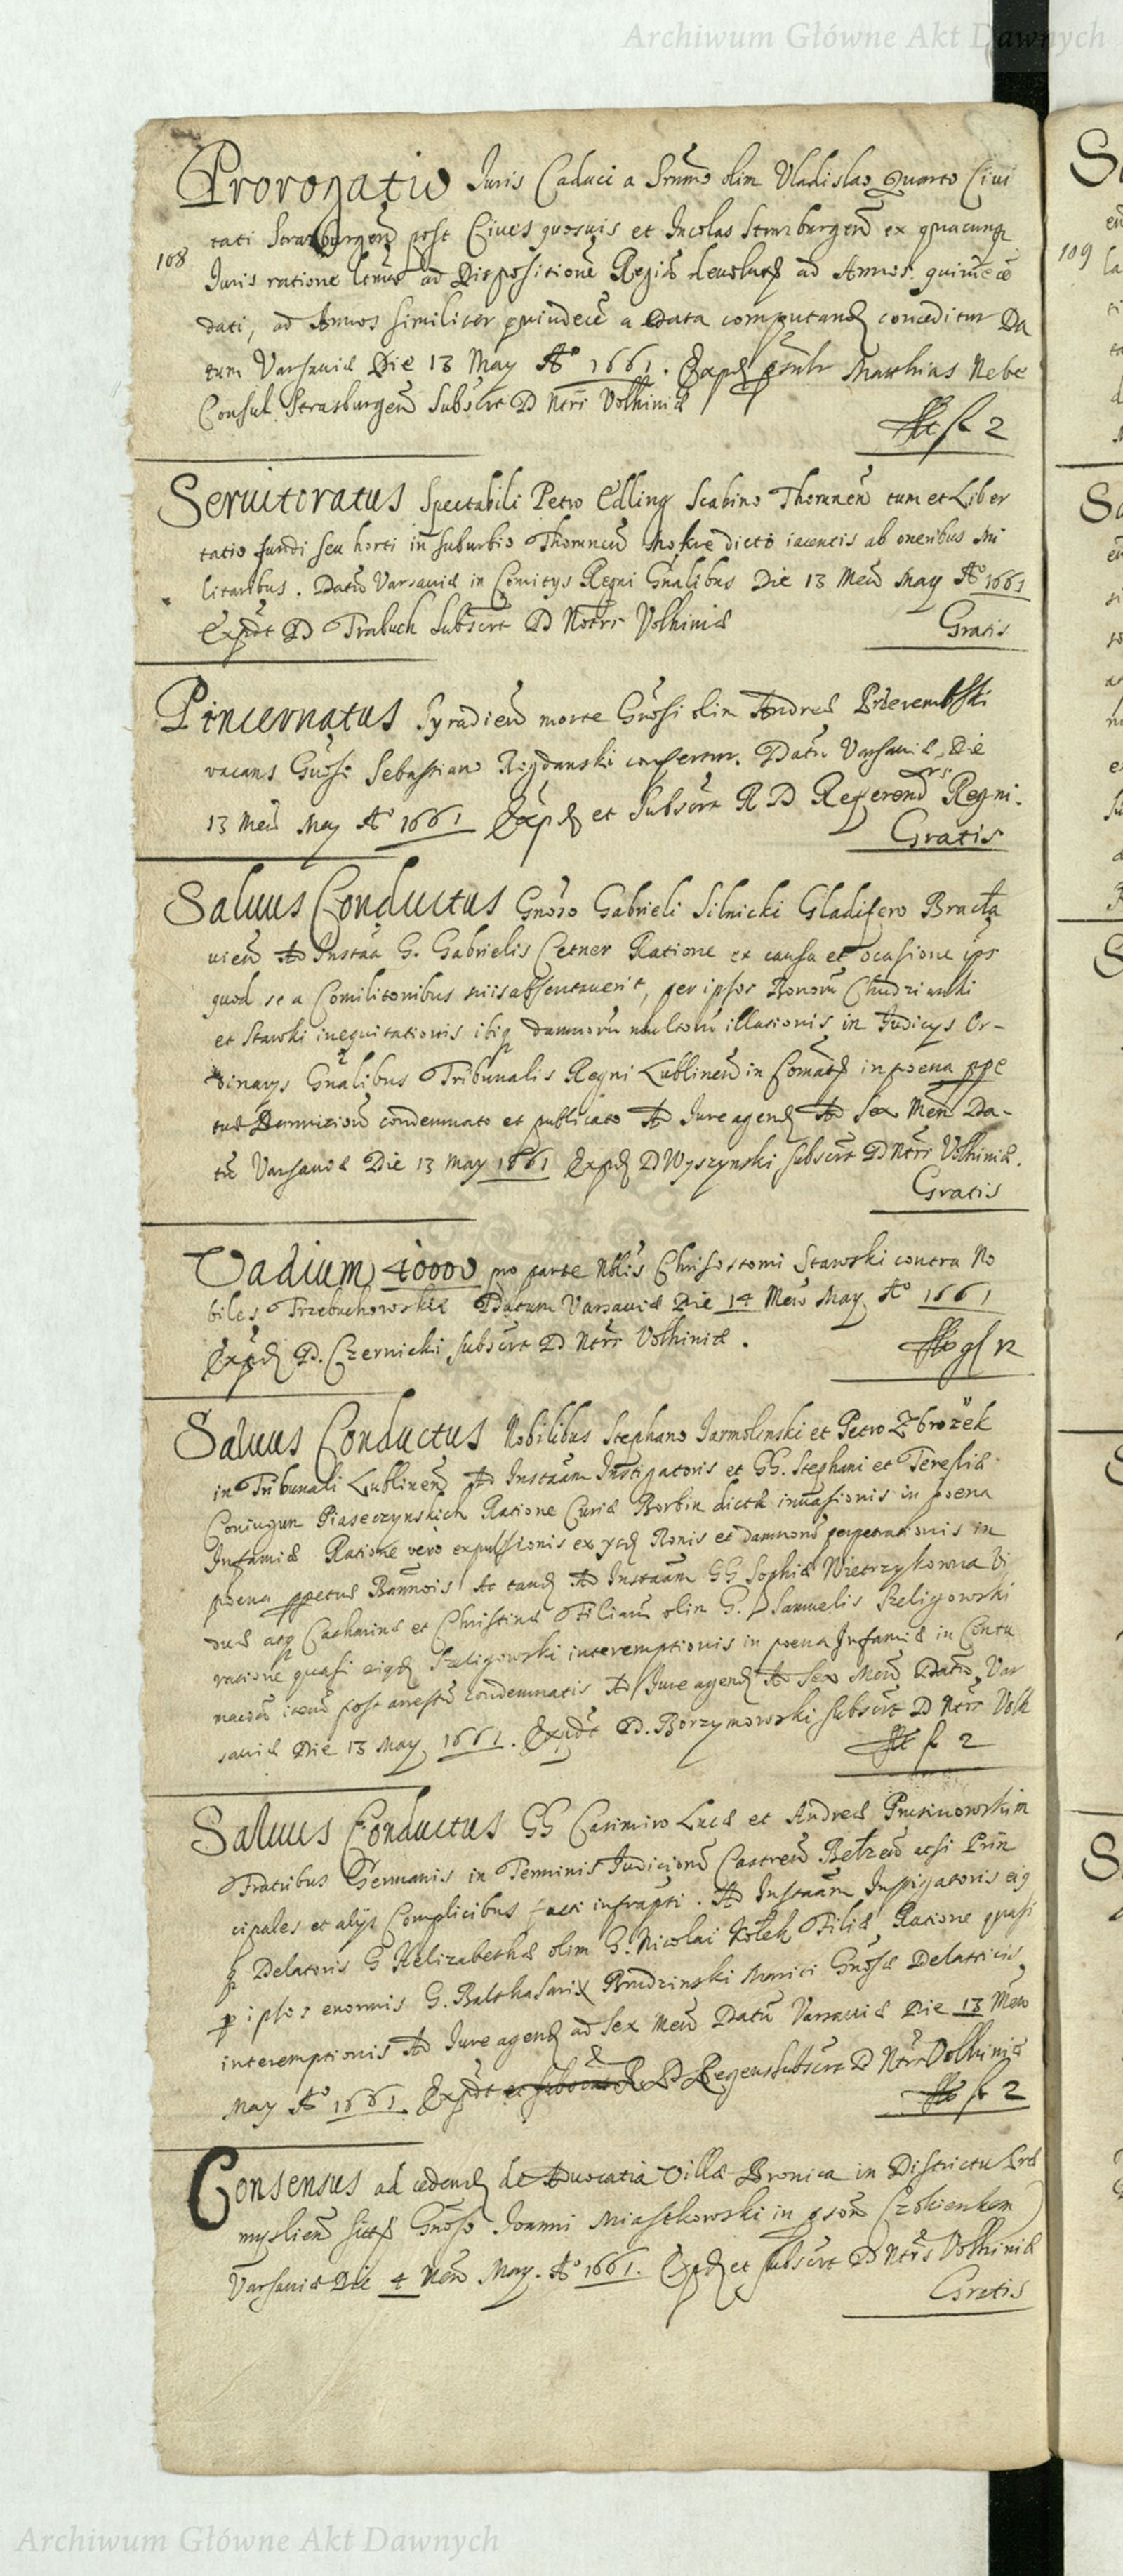 Archiwum Główne Akt Dawnych
Prorogatio Juris Caduci a Srnmo olim Vladislao Quarto Civi
tati Strasburgen post Cives quosvis et Incolas Strasburgen ex quacunq
108
109
Juris ratione ad Dispositione Regia devoluta ad Annos quindece
dati, ad Annos similiter quindece a Data computand conceditur Da
tum Varsaviæ Die 13 May Aº 1661. Exped Matthias Nebe
Consul Strasburgen Subscrt D Ntrs Volhiniæ
fl 2
Servitoratus Spectabili Petro Edling Scabino Thorunen tum et Liber
tatio fundi seu horti in suburbio Thorunen Mokre dicto iacentis ab oneribus Mi
litaribus. Datu Varsaviæ in Comitys Regni Gnalibus Die 13 Men May Aº 1661
Expdt D Trabuch Subscrt D Notrs Volhiniæ
Gratis
Pincernatus Syradien morte Gnosi olim Andreæ Przerembski
vacans Gnoso Sebastiano Rogdanski confertur. Datu Varsaviæ Die
13 Men May Aº 1661 Exped et Subscrt R D Referend Regni.
Gratis
Salvus Conductus Gnoso Gabrieli Silnicki Gladifero Bracla
vien Ad Instaa G. Gabrielis Cetner Ratione et causa et ocasione ips
quod se a Comilitonibus suis absentaverit, per ipsos Bonoru Chudzianki
et Stawki inequitationis ibiq damnoru multoru illationis in Judicys Or-
dinarys Gnalibus Tribunalis Regni Lublinen in poena ppe
tuæ condemnato et publicato Ad Jure agend Ad Sex Men Da-
tu Varsaviæ Die 13 May 1661 Exped D Wyszynski Subscrt D Ntrs Volhiniæ.
Gratis
Vadium 40000 pro parte Nblis Chrisostomi Stawski contra No
biles Trzebuchowskie Datum Varsaviæ Die 14 Men May Aº 1661
Exped D. Czernicki Subscrt D Ntrs Volhiniæ.
Salvus Conductus Nobilibus Stephano Jarmolinski et Petro Zbrożek
in Tribunali Lublinen Ad Instaam Instigatoris et GG. Stephani et Teresiæ
Coniugum Piaseczynskich Ratione Curiæ Borbin dictæ invasionis in poena
Infamiæ Ratione vero expulsionis ex et damnoru perpetrationis in
poena ppetuæ Ac tand Ad Instaam GG Sophiæ Wietrzykowna Vi
duæ atq Catharinæ et Christinæ Filiaru olim G. Samuelis Szeligowski
ratione quasi Szeligowski interemptionis in poena Infamiæ in Contu
maciam post arrestu condemnatis Ad Jure agend Ad Sex Men Datu Var
saviæ Die 13 May 1661. Expdt D. Borzymowski Subscrt D Ntrs Volh
fl 2
Salvus Conductus GG Casimiro Lucæ et Andreæ Prusinowskim
Fratribus Germanis in Terminis Judicioru Castren Belzen Prin
cipales et alys Complicibus facti infrapti. Ad Instaam Instigatoris eig
q Delatoris G Helizabethæ olim G. Nicolai Kołek Filiæ Ratione quasi
p ipsos enormis G. Balthasaris Brudzinski Mariti Gnosæ Delatricis
interemptionis Ad Jure agend ad Sex Men Datu Varsaviæ Die 13 Men
May Aº 1661. Expdt D Regens Subscrt D Ntrs Volhiniæ
fl 2
Consensus ad cedend de Advocatia Villæ Bronica in Districtu Præ
myslien Gnoso Joanni Miastkowski in
Varsaviæ Die 4 Men May. Aº 1661. Exped et Subscrt D Ntrs Volhiniæ
Gratis
Archiwum Główne Akt Dawnych